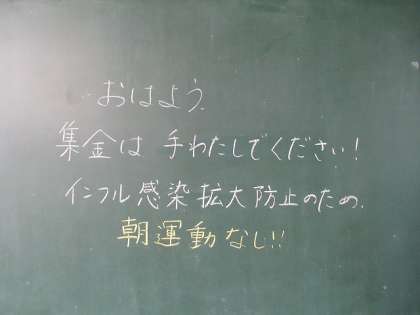 おはよう.
集金は 手わたしでください!
インフル感染拡大防止のため.
朝運動なし!!